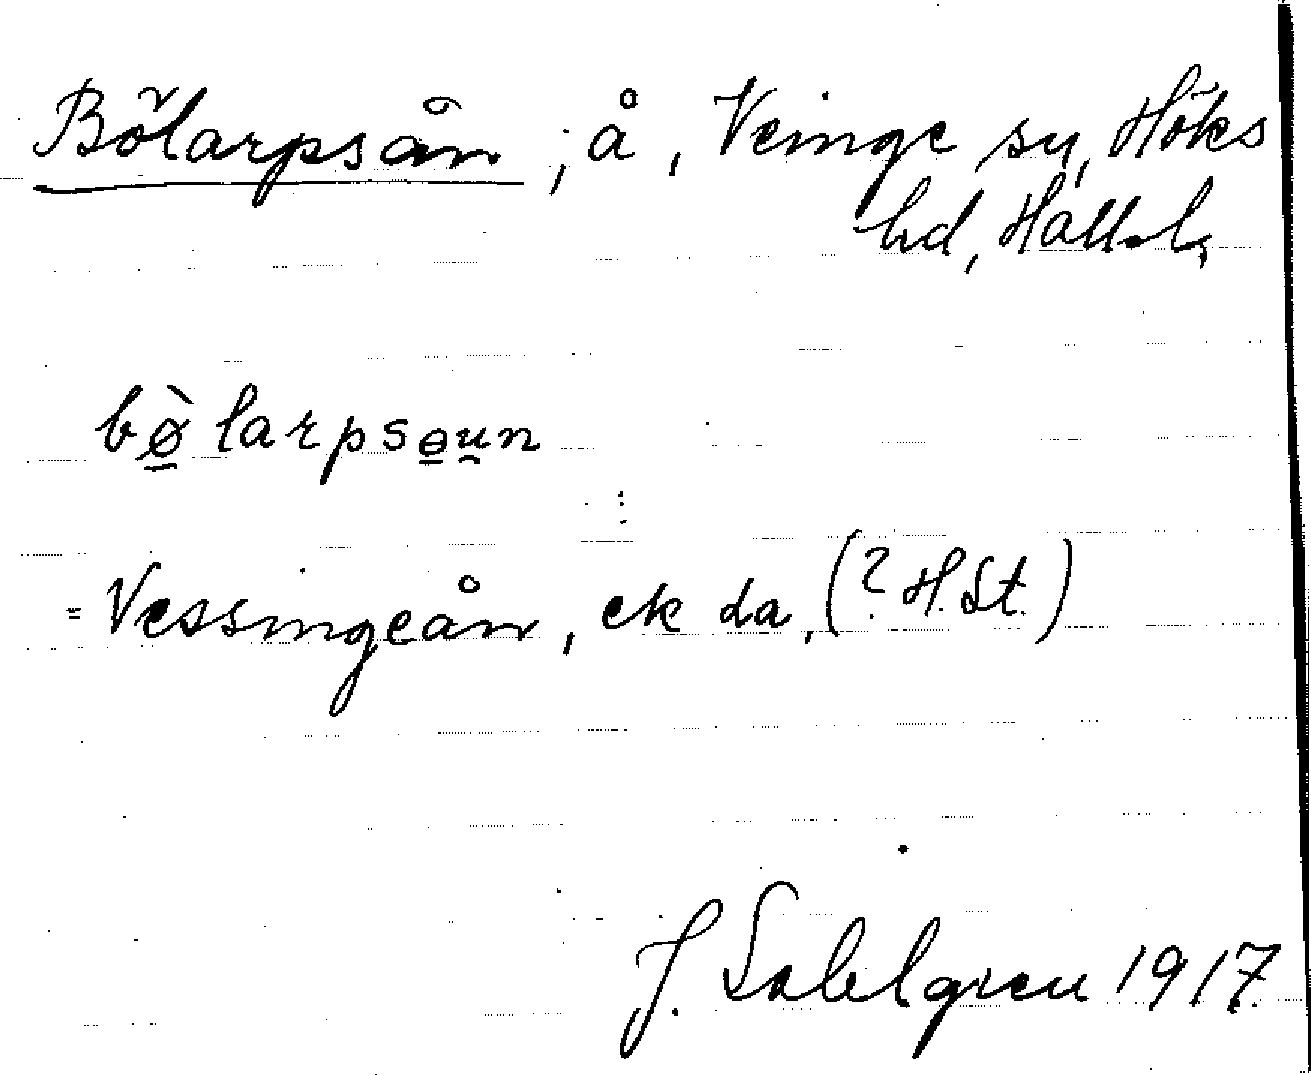 Bölarpsån, å, Veinge sn, Höks
hd, Hall.l.
bø̠̀larpsɵ̠u̯n
= Vessingeån, ek da, (? H. St.)
J. Sahlgren 1917